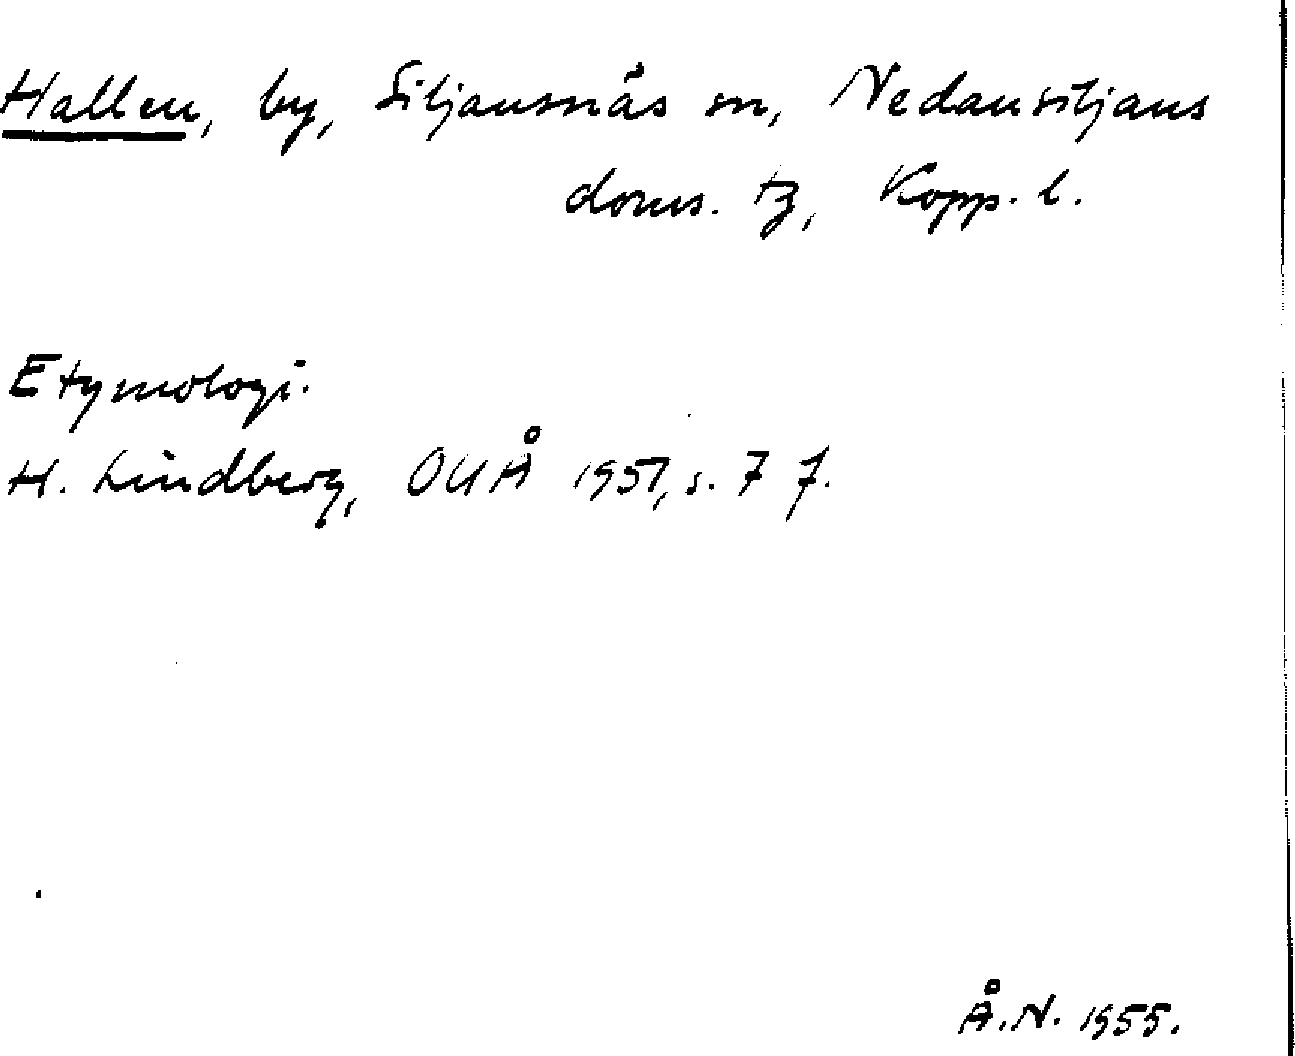 Hallen, by, Siljansnäs sn, Nedansiljans
doms. tg, Kopp. l.
Etymologi.
H. Lindberg, OUÅ 1951, s. 7 f.
Å.N. 1955.